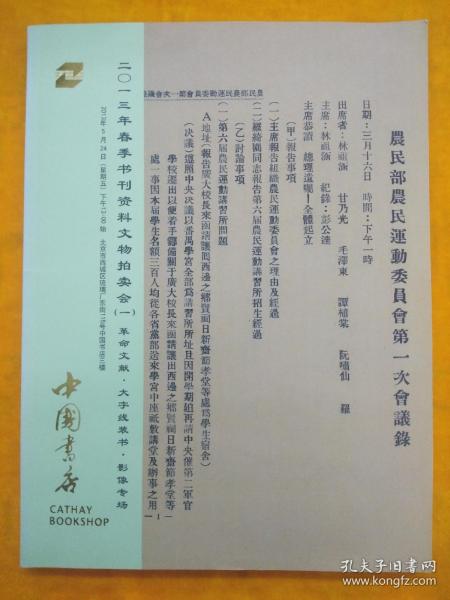 二〇一三年春季书刊资料文物拍卖会(一) 革命文献·大字线装书·影像专场
2013年5月24日(星期五)下午13:00始 北京市西城区琉璃厂东街115号中国书店三楼
中國書店
CATHAY
BOOKSHOP
農民部農民運動委員會第一次會議錄
農民部農民運動委員會第一次會議錄
日期:三月十六日 時間:下午一時
出席者:林祖涵 甘乃光 毛澤東 譚植棠 阮嘯仙 羅
主席:林祖涵 紀錄:彭公達
主席恭讀 總理遺囑!全體起立
(甲)報告事項
(一)主席報告組織農民運動委員會之理由及經過
(二)羅綺園同志報告第六屆農民運動講習所招生經過
(乙)討論事項
(一)第六屆農民運動講習所問題
A地址(報告廣大校長來函請讓囘西邊之鄉賢祠日新齋節孝堂等處爲學生宿舍)
(决議)遵照中央决議以番禺學宮全部爲講習所所址且因開學期廹再請中央催第二軍官
學校遷出以便着手籌備關于廣大校長來函請讓出西邊之鄉賢祠日新齋節孝堂等—
處一事因本屆學生名額三百人均從各省黨部送來學宮中座祗敷講堂及辦事之用
—1—
孔夫子旧书网
www.kongfz.com